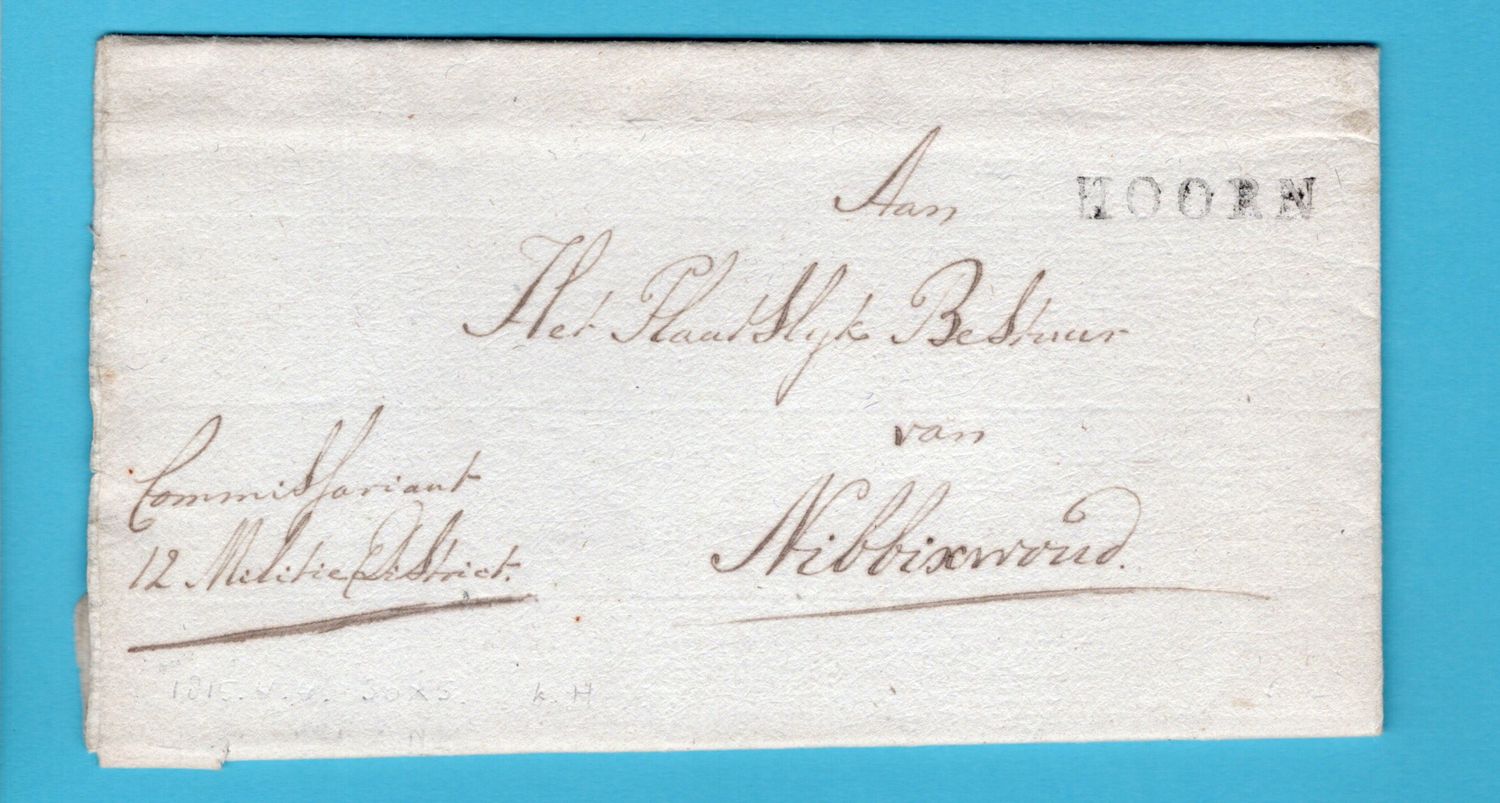 Aan
HOORN
Het Plaatslyk Bestuur
van
Nibbixwoud.
Commissariaat
12 Militie District.
K.H